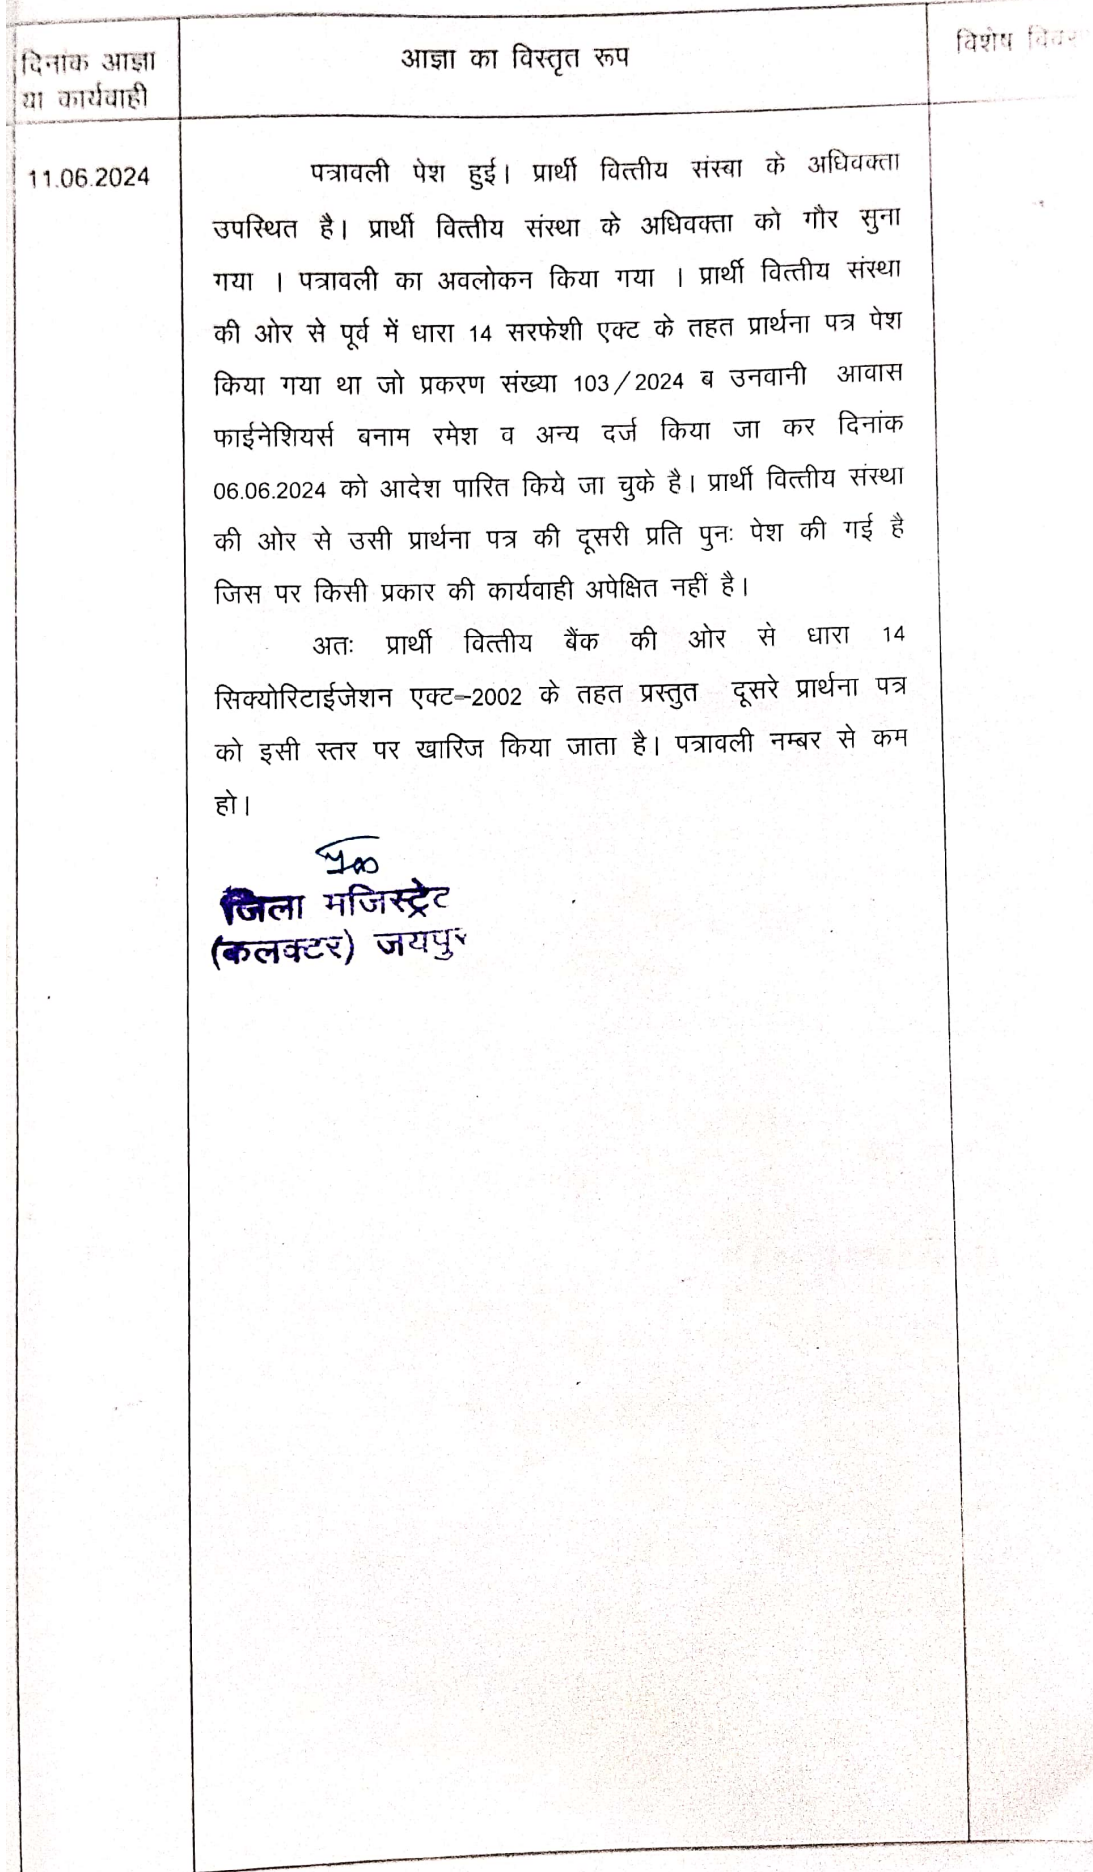 दिनांक आज्ञा
या कार्यवाही
आज्ञा का विस्तृत रूप
विशेष
11.06.2024
पत्रावली पेश हुई। प्रार्थी वित्तीय संस्था के अधिवक्ता
उपस्थित है। प्रार्थी वित्तीय संस्था के अधिवक्ता को गौर सुना
गया । पत्रावली का अवलोकन किया गया । प्रार्थी वित्तीय संस्था
की ओर से पूर्व में धारा 14 सरफेशी एक्ट के तहत प्रार्थना पत्र पेश
किया गया था जो प्रकरण संख्या 103/2024 ब उनवानी आवास
फाईनेशियर्स बनाम रमेश व अन्य दर्ज किया जा कर दिनांक
06.06.2024 को आदेश पारित किये जा चुके है। प्रार्थी वित्तीय संस्था
की ओर से उसी प्रार्थना पत्र की दूसरी प्रति पुनः पेश की गई है
जिस पर किसी प्रकार की कार्यवाही अपेक्षित नहीं है।
अतः प्रार्थी वित्तीय बैंक की ओर से धारा 14
सिक्योरिटाईजेशन एक्ट–2002 के तहत प्रस्तुत दूसरे प्रार्थना पत्र
को इसी स्तर पर खारिज किया जाता है। पत्रावली नम्बर से कम
हो।
जिला मजिस्ट्रेट
(कलक्टर) जयपुर